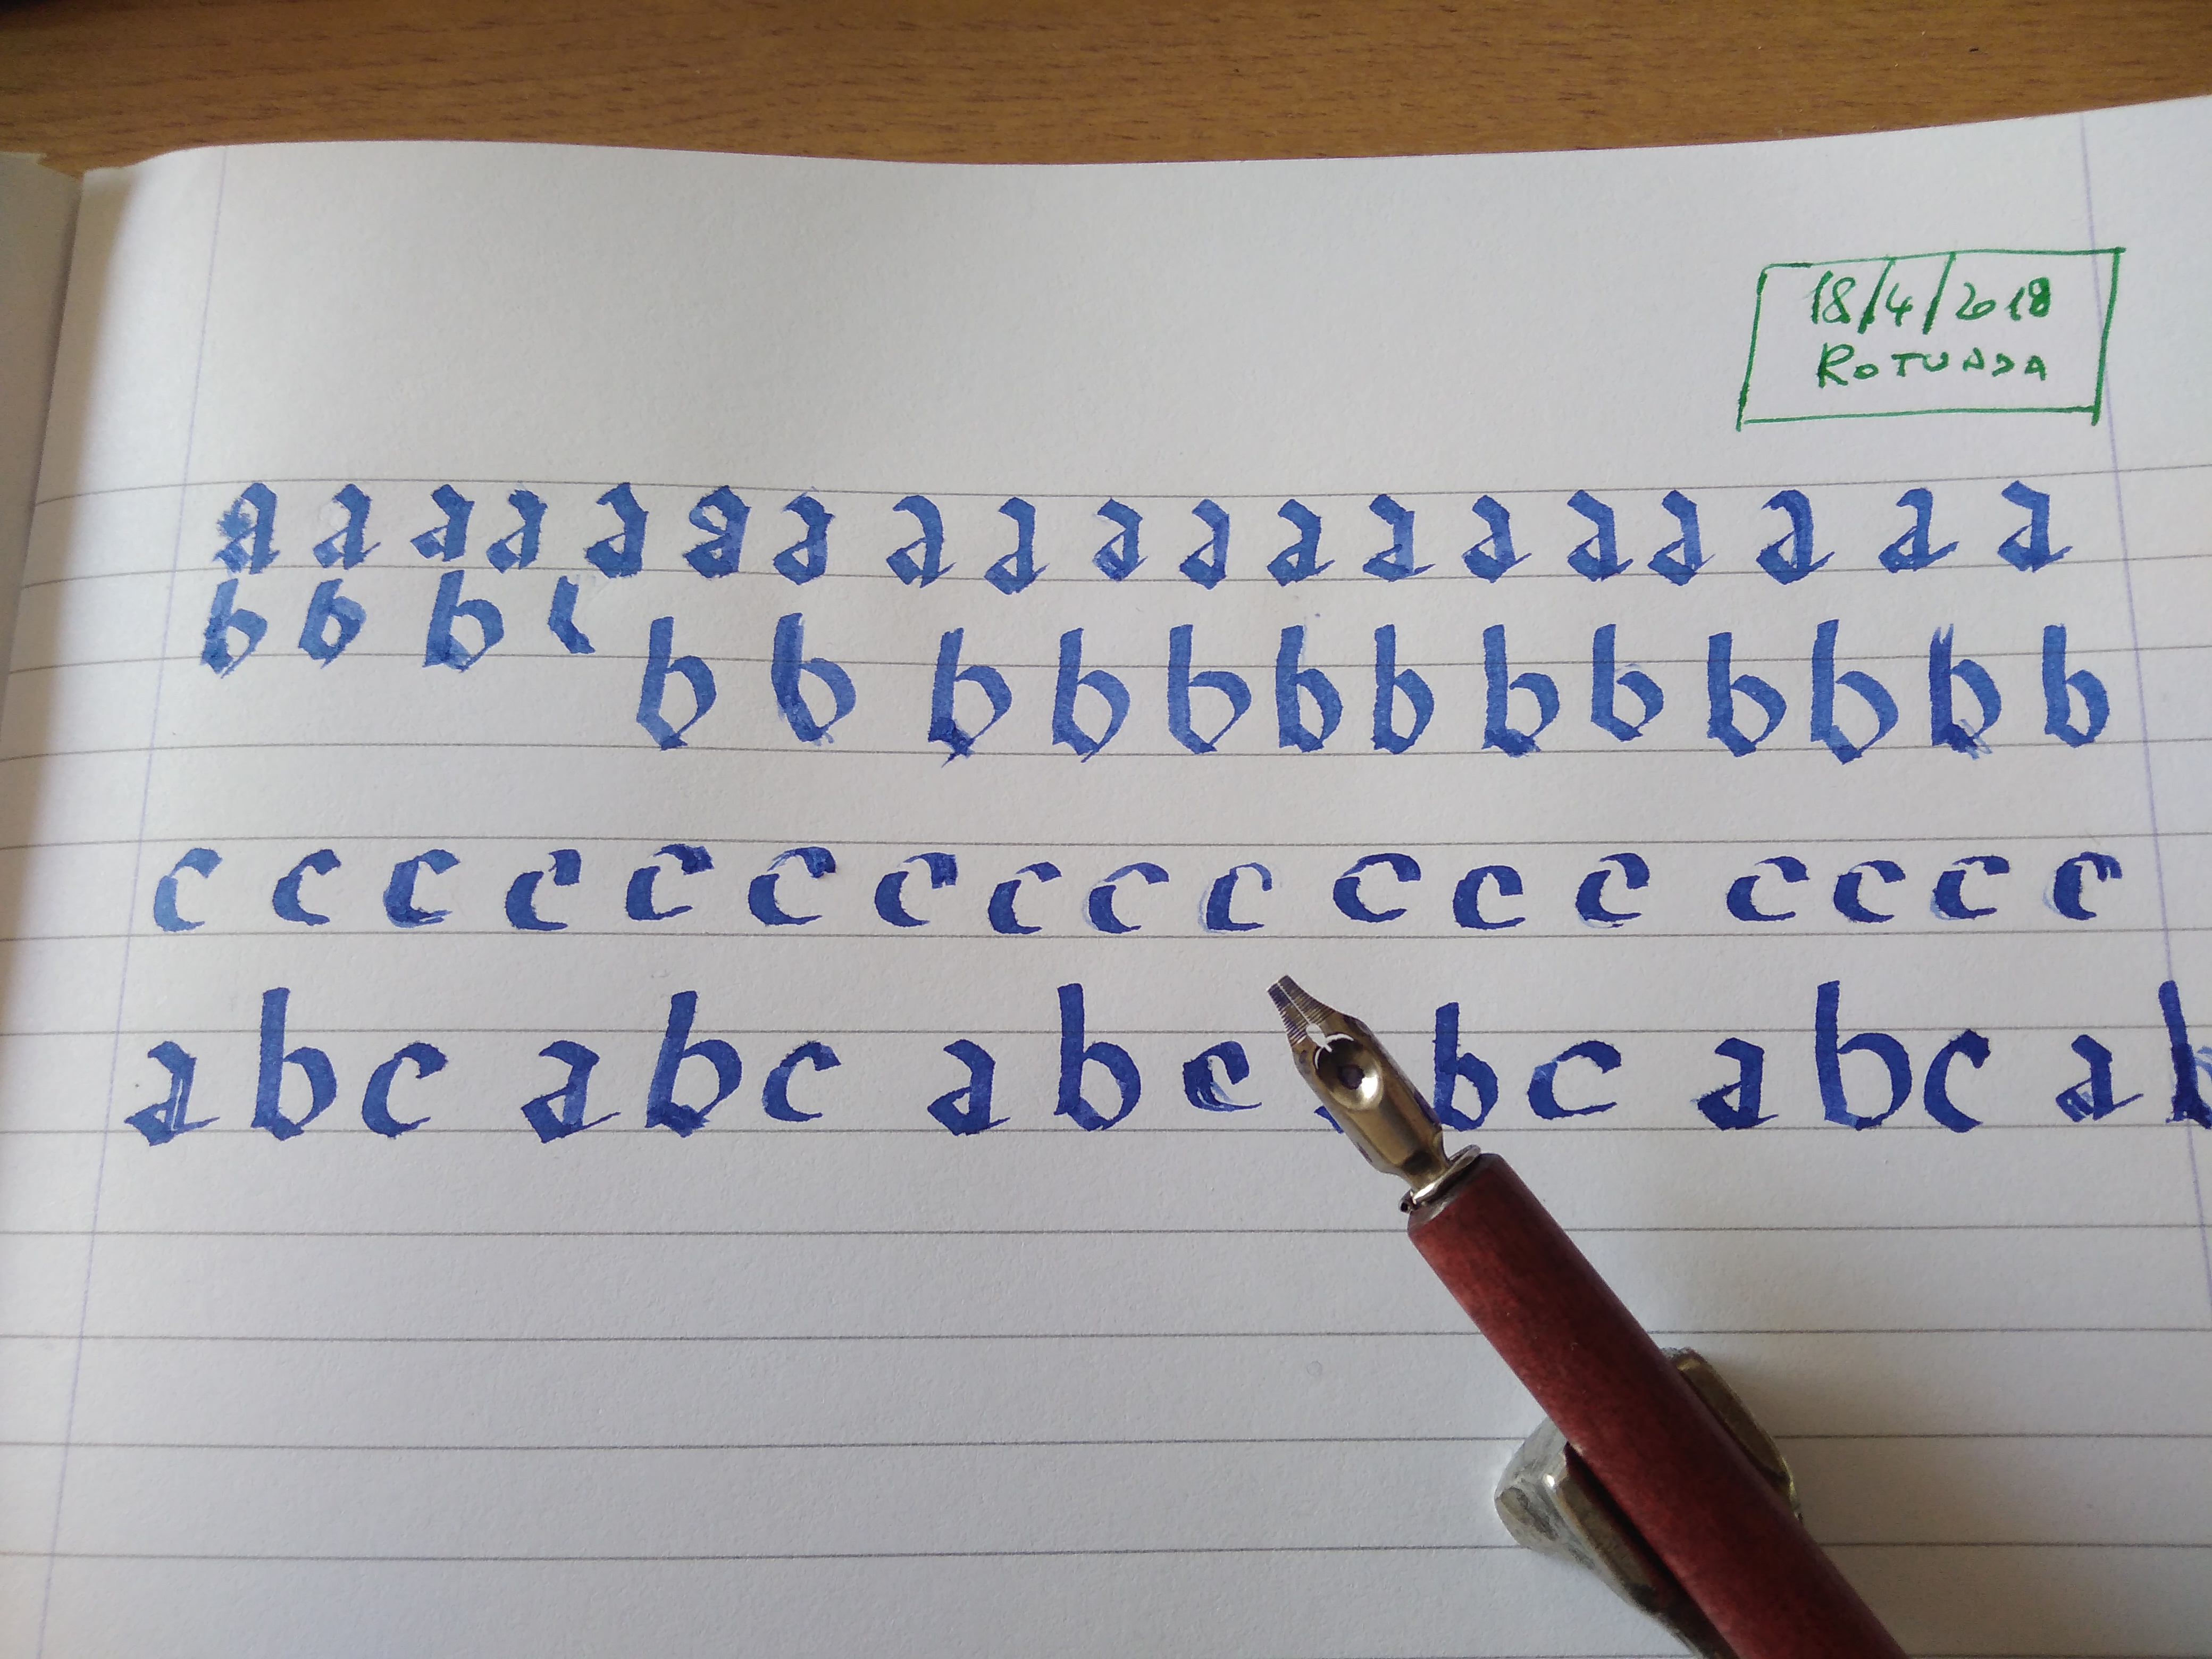 18/4/2018
ROTUNDA
a a a a a a a a a a a a a a a a a a a
b b b b b b b b b b b b b b b b
c c c c c c c c c c c c c c c c c
a b c a b c a b c b c a b c a b